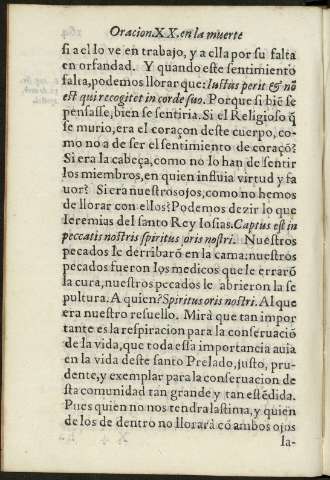 Oracion.XX.en la muerte
si a el lo ve en trabajo, y a ella por su falta
en orfandad. Y quando este sentimiento
falta, podemos llorar que: Iustus perit & nō
est qui recogitet in corde suo. Porque si biē se
pensasse, bien se sentiria. Si el Religioso q̃
se murio, era el coraçon deste cuerpo, co-
mo no a de ser el sentimiento de coraçō?
Si era la cabeça, como no lo han de sentir
los miembros, en quien influia virtud y fa
uor? Si era nuestros ojos, como no hemos
de llorar con ellos? Podemos dezir lo que
Ieremias del santo Rey Iosias. Captus est in
peccatis nostris spiritus oris nostri. Nuestros
pecados le derribarō en la cama: nuestros
pecados fueron los medicos que le errarō
la cura, nuestros pecados le abrieron la se
pultura. A quien? Spiritus oris nostri. Al que
era nuestro resuello. Mirà que tan impor
tante es la respiracion para la conseruaciō
de la vida, que toda essa importancia auia
en la vida deste santo Prelado, justo, pru-
dente, y exemplar para la conseruacion de
sta comunidad tan grande y tan estēdida.
Pues quien no nos tendra lastima, y quien
de los de dentro no llorarà cō ambos ojos
la-